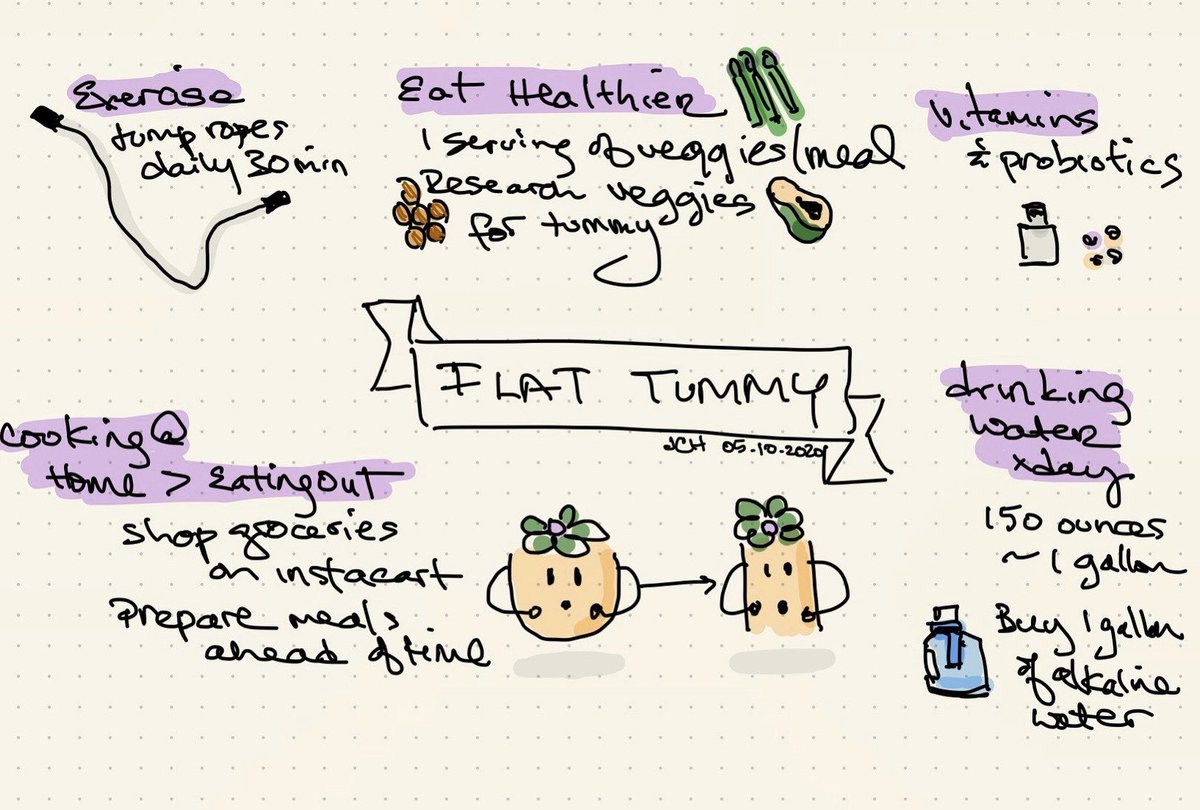 Exercise
Jump ropes
daily 30 min
Eat Healthier
1 serving of veggies/meal
Research veggies
for tummy
Vitamins
& probiotics
FLAT TUMMY
JCH 05.10.2020
cooking @
Home > Eating Out
shop groceries
on instacart
Prepare meals
ahead of time
drinking
water
xday
150 ounces
~ 1 gallon
Buy 1 gallon
of alkaline
water